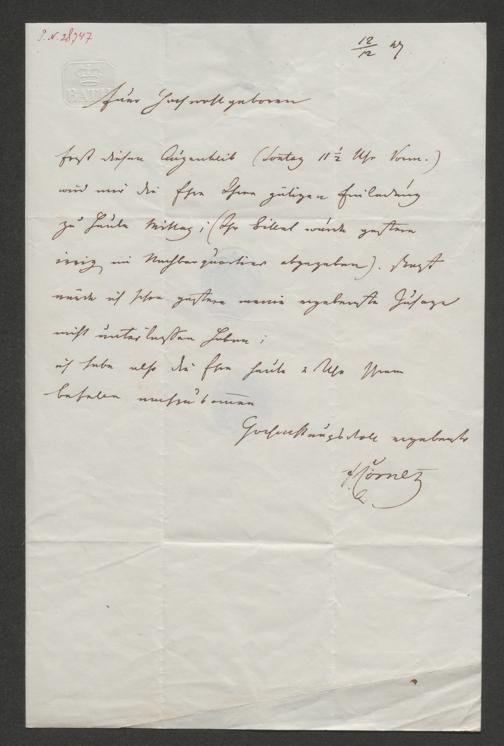 J. N. 28747
12/12 47
BATH
Euer Hochwohlgeboren
Erst diesen Augenblick (Sontag 11 ½ Uhr Vorm.)
wird mir die Ehre Ihrer gütigen Einladung
zu heute Mittag; (Ihr Billet wurde gestern
irrig im Nachbarquartier abgegeben). Sonst
würde ich schon gestern meine ergebenste Zusage
nicht unterlassen haben;
ich habe also die Ehre heute 2 Uhr Ihrem
Befehle nachzukommen
Hochachtungsvoll ergebenster